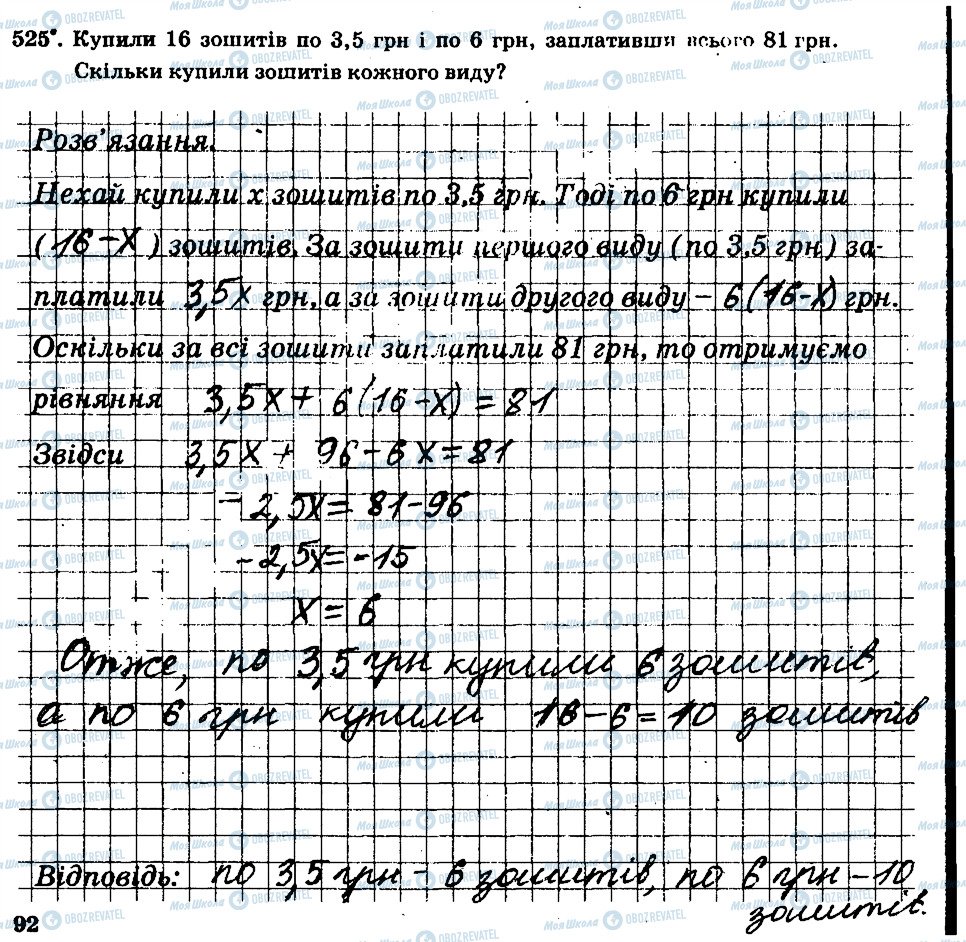 525°. Купили 16 зошитів по 3,5 грн і по 6 грн, заплативши всього 81 грн.
Скільки купили зошитів кожного виду?
Розв'язання.
Нехай купили x зошитів по 3,5 грн. Тоді по 6 грн купили
(16-x) зошитів. За зошити першого виду (по 3,5 грн) за-
платили 3,5x грн, а за зошити другого виду – 6(16-x) грн.
Оскільки за всі зошити заплатили 81 грн, то отримуємо
рівняння 3,5x + 6(16-x) = 81
Звідси 3,5x + 96 - 6x = 81
- 2,5x = 81-96
-2,5x = -15
x = 6
Отже, по 3,5 грн купили 6 зошитів,
а по 6 грн купили 16-6=10 зошитів
Відповідь: по 3,5 грн - 6 зошитів, по 6 грн - 10
зошитів.
92
МояШкола OBOZREVATEL